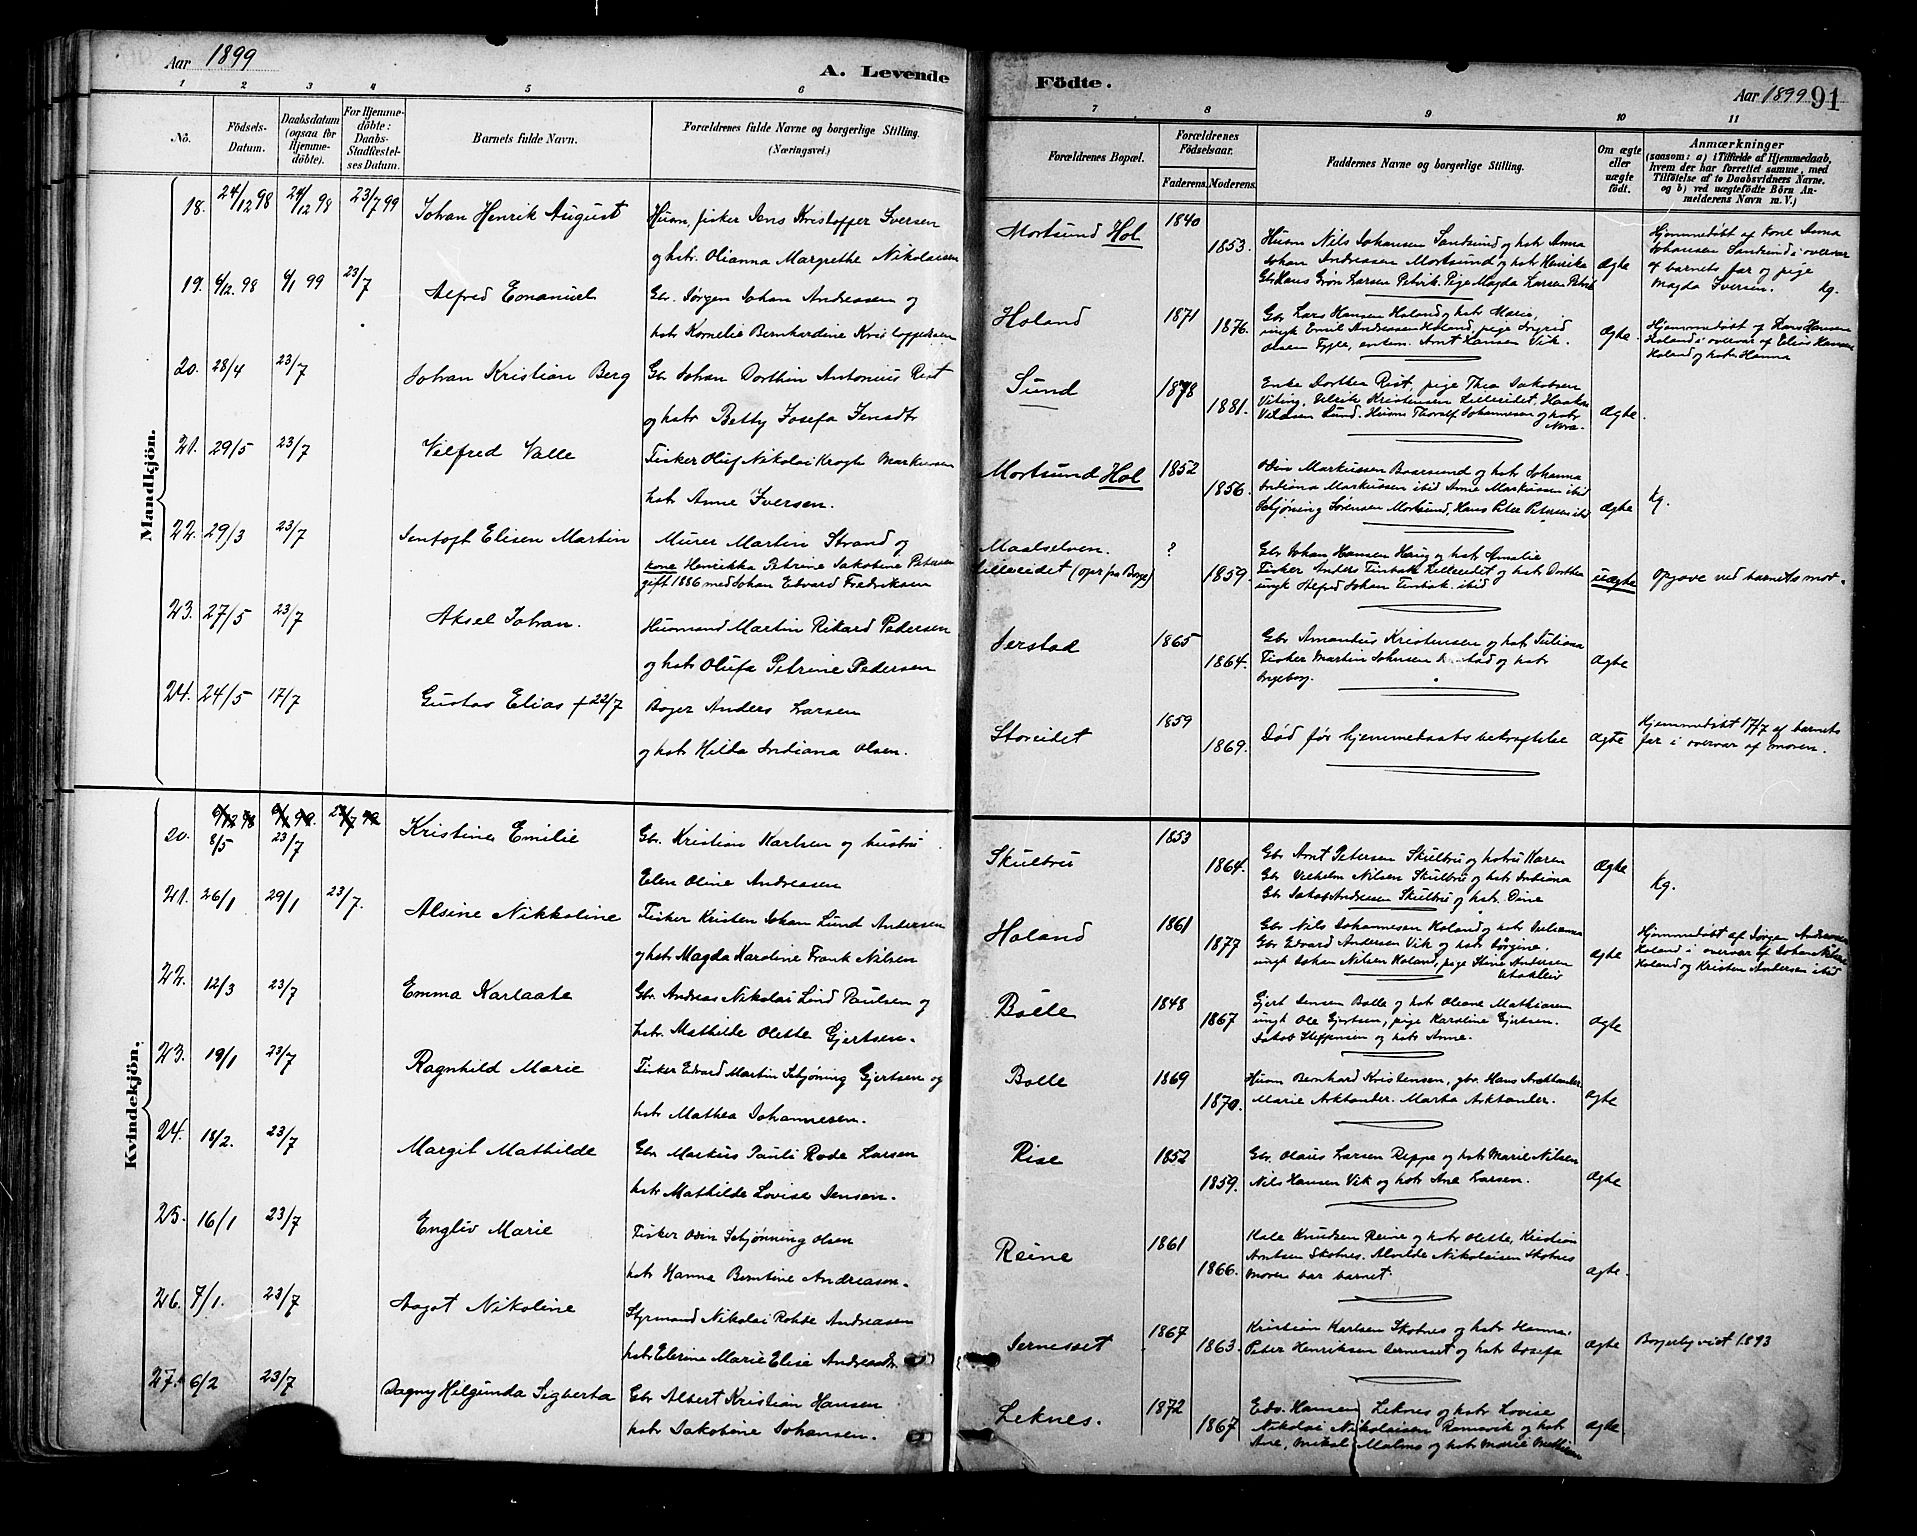 Aar 1899
A. Levende
Födte.
Aar 1899 91
1 2 3 4 5 6 7 8 9 10 11
No.
Födsels-Datum.
Daabsdatum (ogsaa for Hjemmedöbte).
For Hjemmedöbte: Daabs-Stadfæstelses Datum.
Barnets fulde Navn.
Forældrenes fulde Navne og borgerlige Stilling.
(Næringsvei.)
Forældrenes Bopæl.
Forældrenes Födselsaar.
Faderens. Moderens.
Faddernes Navne og borgerlige Stilling.
Om ægte eller uægte födt.
Anmærkninger
(saasom: a) i Tilfælde af Hjemmedaab, hvem der har forrettet samme, med Tilföielse af to Daabsvidners Navne, og b) ved uægtefödte Börn Anmelderens Navn m. V.)
Mandkjön.
18. 24/12 98 24/12 98 23/7 99 Johan Henrik August Husm, fisker Jens Kristoffer Iversen
og hstr. Olianna Margrethe Nikolaisen
Mortsund Hol 1840
1853. Husm Nils Johansen Sandsund og hstr Anna
Johan Andreasen Mortsund og hstr Henrika
Gbr Hans Grøn Larsen Petvik. Pige Magda Larsen Petvik
Ægte
Hjemmedøbt af kone Anna
Johansen Sandsund i overvær
af barnets far og pige
Magda Iversen. kg.
19. 6/12. 98 6/1 99 23/7 Alfred Emanuel Gbr. Jørgen Johan Andreasen og
hstr Kornelie Bernhardine Kristoffersen
Holand 1871
1876. Gbr Lars Hansen Holand og hstr Marie,
ungk Emil Andreasen Holand, pige Ingrid
Olsen Fygle, enkem. Arnt Hansen Vik.
Ægte
Hjemmedøbt af Lars Hansen
Holand i overvær af Elias Hansen
Holand og hstr Hanna
20. 28/4 23/7 Johan Kristian Berg Gbr Johan Dorthin Antonius Rist
og hstr Betty Josefa Jensdtr
Sund 1878
1881. Enke Dorthea Rist, pige Thea Jakobsen
Viting, Ulrik Kristensen Lilleeidet, Haakon
Sund. Husm Thoralf Johannesen og hstr
Nora.
Ægte.
21. 29/5 23/7 Vilfred Valle Fisker Oluf Nikolai Krogh Markussen
hstr Anne Iversen.
Mortsund Hol 1852
1856. Odin Markussen Baarsund og hstr Johanna
Indiana Markussen ibid Anne Markussen ibid
Schjøning Sørensen Mortsund, Hans Peter Petersen ibid
Ægte kg.
22. 29/3 23/7 Jentoft Elisen Martin Murer Martin Strand og
kone Henrikka Petrine Jakobine Petersen
gift 1886 med Johan Edvard Fredriksen
Maalselven.
Lilleeidet (opr fra Borge) ?
1859. Gbr Johan Hansen Haug og hstr Amalie
Fisker Anders Tinbak Lilleeidet og hstr Dorthea
ungk Johan Tinbak ibid
uægte opgave ved barnets mor.
23. 27/5 23/7 Aksel Johan. Husmand Martin Rikard Pedersen
og hstr Olufa Petrine Pedersen
Jerstad 1865
1864. Gbr Amandus Kristensen og hstr Juliana
Fisker Martin Johnsen og hstr
Ingeborg.
Ægte
24. 24/5 17/7 Gustav Elias +22/7 Boger Anders Larsen
og hstr Hilda Indiana Olsen.
Storeidet 1859
1869. Død før hjemmedaabs bekræftelse Ægte
Hjemmedøbt 17/7 af barnets
far i overvær af moren.
Kvindekjön.
6/12 98 6/1 99. 23/7 99
20. 8/5 23/7 Kristine Emilie Gbr. Kristian Karlsen og hustru
Elen Oline Andreasen
Skulbru 1853
1864. Gbr Arnt Petersen Skulbru og hstru Karen
Gbr Vilhelm Nilsen Skulbru og hstr Indiana
Gbr Jakob Andreasen Skulbru og hstr. Dine
Ægte kg.
21. 26/1 29/1 23/7. Alsine Nikkoline Fisker Kristen Johan Lund Andersen
og hstr Magda Karoline Frank Nilsen
Holand 1861
1877 Gbr Nils Johannesen Holand og hstr
Gbr Edvard Andersen Vik og hstr Jørgine.
ungk Johan Nilsen Holand, pige Stine Andersen
Ægte
Hjemmedøbt af Jørgen Andreasen
Holand i overvær af Johan Nilsen
Holand og Kristen Andersen ibid
22. 12/3 23/7 Emma Karlaate Gbr. Andreas Nikolai Lind Paulsen og
hstr. Mathilde Olette Gjertsen.
Bolle 1848
1867 Gjert Jensen Bolle og hstr Oleane Mathiasen
ungk Ole Gjertsen, pige Karoline Gjertsen.
Jakob Steffensen og hstr Anne.
Ægte
23. 19/1 23/7 Ragnhild Marie Fisker Edvard Martin Schjøning Gjertsen og
hstr Mathea Johannesen.
Bolle 1869
1870. Husm Bernhard Kristensen, gbr. Hans Arktander
Marie Arktander. Marta Arktander.
Ægte
24. 18/2. 23/7 Margit Mathilde Gbr Markus Pauli Rode Larsen
hstr Mathilde Lovise Jensen.
Rise 1852
1859. Gbr. Olaus Larsen Reppe og hstr Marie Nilsen
Nils Hansen Vik og hstr Ane Larsen.
Ægte
25. 16/1 23/7 Engliv Marie Fisker Odin Schjønning Olsen
hstr Hanna Berntine Andreasen.
Reine 1861
1866. Knudsen Reine og hstr Olette, Kristian
Arntsen Skotnes. Alvilde Nikolaisen Skotnes
Moren bar barnet.
Ægte.
26. 7/1. 23/7 Aagot Nikoline Styrmand Nikolai Rohde Andreasen
hstr Elerine Marie Elise Andreasdtr
Jernesset 1867
1863. Kristian Karlsen Skotnes og hstr Hanna.
Peter Henriksen Jernesset og hstr Josefa
Ægte Borgerlig viet 1893
27. 6/2 23/7 Dagny Hilgunda Sigberta Gbr Albert Kristian Hansen
hstr Jakobine Johansen.
Leknes. 1872
1867 Edv. Hansen Leknes og hstr Lovise
Nikolai Nikolaisen Ramsvik og hstr
Ane, Mikal Malmo og hstr Marie
Ægte